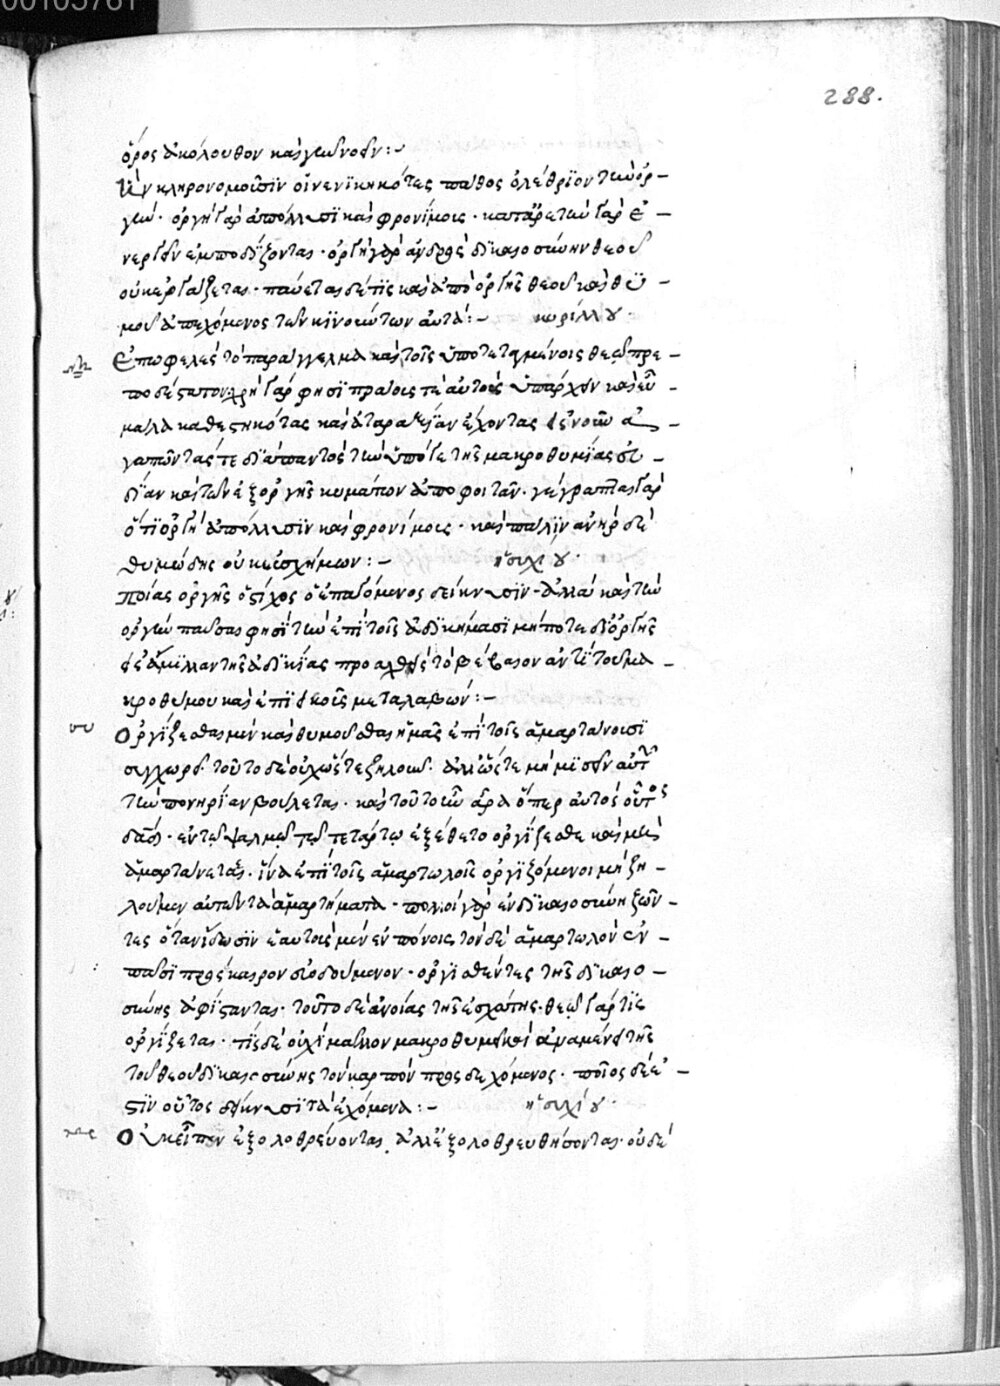 00105761
288.
ὅρος ἀκόλουθον καὶ γεῶνοεῖν:~
κληρονομοῦσϊν οἱ νενϊκηκότες πάθος ὀλέθρϊον τὴν ὀρ-
γὴν· ὀργὴ γὰρ ἀπόλλυσϊ καὶ φρονίμους· κατἀρετὴν γὰρ ἐ-
νεργεῖν ἐμποδΐζοντας· ὀργὴ γὰρ ἀνδρὸς δϊκαιοσύνην θεοῦ
οὐκ ἐργάζεται· παύεται δέ τϊς καὶ ἀπὸ ὀργῆς θεοῦ καὶ θϋ-
μοῦ ἀπεχόμενος τῶν κϊνούντων αὐτά:~ κυρίλλου·
Ἐπωφελὲς τὸ παράγγελμα καὶ τοῖς ὑποτεταγμένοις θεῷ πρε-
πωδέστατον· χρὴ γάρ φησϊ πράους τε αὐτοὺς ὑπάρχειν καὶ εὖ
μάλα καθεστηκότας καὶ ἀταραξΐαν ἔχοντας ἐν νοΐ ἀ-
γαπῶντάς τε δϊαπαντὸς τὴν ὑπό γε τῆς μακροθυμΐας εὐ-
δΐαν καὶ τῶν ἐξ ὀργῆς κυμάτων ἀποφοιτᾶν· γέγραπται γὰρ
ὅτϊ ὀργὴ ἀπόλλυσϊν καὶ φρονίμους· καὶ πάλϊν ἀνὴρ δὲ
θυμώδης οὐκ εὐσχήμων:~ ἡσυχίου·
Ποίας ὀργῆς ὁ στίχος ὁ ἐπαγόμενος δείκνυσϊν· ἀλλὰ καὶ τὴν
ὀργὴν παῦσαι φησϊ τὴν ἐπὶ τοῖς ἀδϊκήμασϊ μήποτε δϊ' ὀργῆς
εἰς ἅμϊλλαν τῆς ἀδϊκΐας προαχθῇς τὸ βέβαιον ἀντϊ τοῦ μα-
κροθύμου καὶ ἐπϊεικοῦς μεταλαβών:~
Ὀργΐζεσθαι μὲν καὶ θυμοῦσθαι ἡμᾶς ἐπὶ τοῖς ἁμαρτάνουσϊ
συγχωρεῖ· τοῦτο δὲ οὐχ ὥστε ζηλοῦν· ἀλλ' ὥστε μὴ μϊσεῖν αὐτῶν
τὴν πονηρΐαν βούλεται· καὶ τοῦτο ἦν ἄρα ὅπερ αὐτὸς οὗτος
δαδ· ἐν τῷ ψαλμῷ τῷ τετάρτῳ ἐξέθετο ὀργΐζεσθε καὶ μὴ
ἁμαρτάνετε· ἵνα ἐπὶ τοῖς ἁμαρτωλοῖς ὀργϊζόμενοι μὴ ζη-
λοῦμεν αὐτῶν τὰ ἁμαρτήματα· πολλοὶ γὰρ ἐν δϊκαιοσύνῃ ζῶν-
τες ὅταν ἴδωσϊν ἑαυτοὺς μὲν ἐν πόνοις, τὸν δὲ ἁμαρτωλὸν ἐν
πᾶσϊ πρὸς καιρὸν εὐοδούμενον· ὀργϊσθέντες τῆς δϊκαιο-
σύνης ἀφΐστανται· τοῦτο δὲ ἀνοίας τῆς ἐσχάτης· θεῷ γὰρ τΐς
ὀργΐζεται· τΐς δὲ οὐχὶ μᾶλλον μακροθυμεῖ ἀναμένει τῆς
τοῦ θεοῦ δϊκαιοσύνης τὸν καρπὸν προσδεχόμενος· ποῖος δέ ἐ-
στϊν οὗτος δείκνυσϊ τὰ ἐχόμενα:~ ἡσυχίου·
Οὐκ εἶπεν ἐξολοθρεύονται, ἀλλ' ἐξολοθρευθήσονται· οὐδὲ